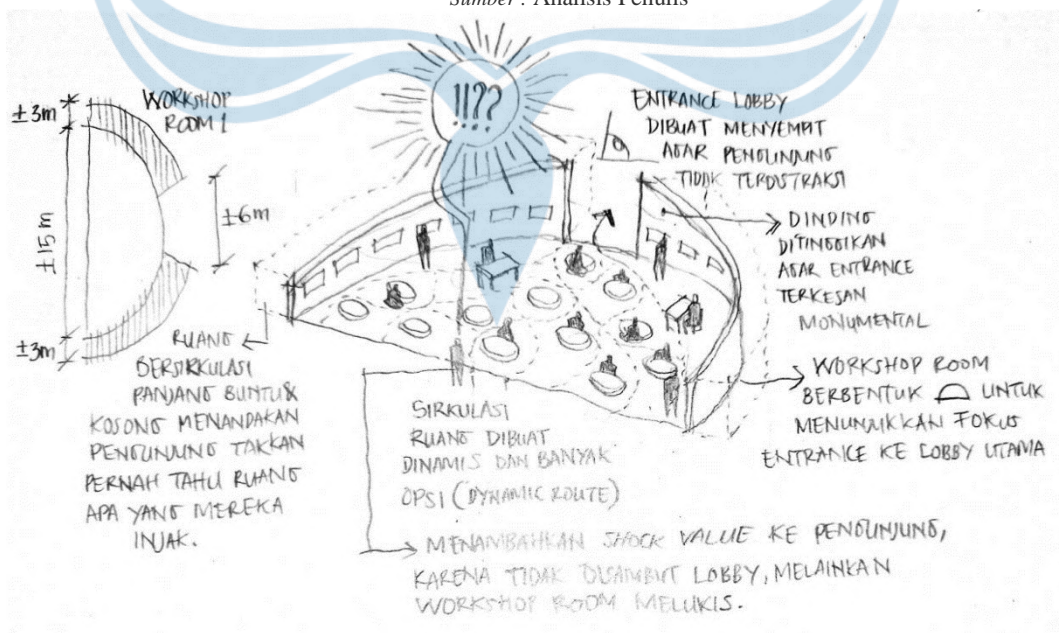 Sumber : Analisis Penulis
WORKSHOP
ROOM 1
±3m
±15m
±3m
±6m
!!??
ENTRANCE LOBBY
DIBUAT MENYEMPIT
AGAR PENGUNJUNG
TIDAK TERDISTRAKSI
DINDING
DITINGGIKAN
AGAR ENTRANCE
TERKESAN
MONUMENTAL
WORKSHOP ROOM
BERBENTUK UNTUK
MENUNJUKKAN FOKUS
ENTRANCE KE LOBBY UTAMA
RUANG
BERSIRKULASI
PANJANG BUNTU &
KOSONG MENANDAKAN
PENGUNJUNG TAKKAN
PERNAH TAHU RUANG
APA YANG MEREKA
INJAK.
SIRKULASI
RUANG DIBUAT
DINAMIS DAN BANYAK
OPSI (DYNAMIC ROUTE)
MENAMBAHKAN SHOCK VALUE KE PENGUNJUNG,
KARENA TIDAK DISAMBUT LOBBY, MELAINKAN
WORKSHOP ROOM MELUKIS.